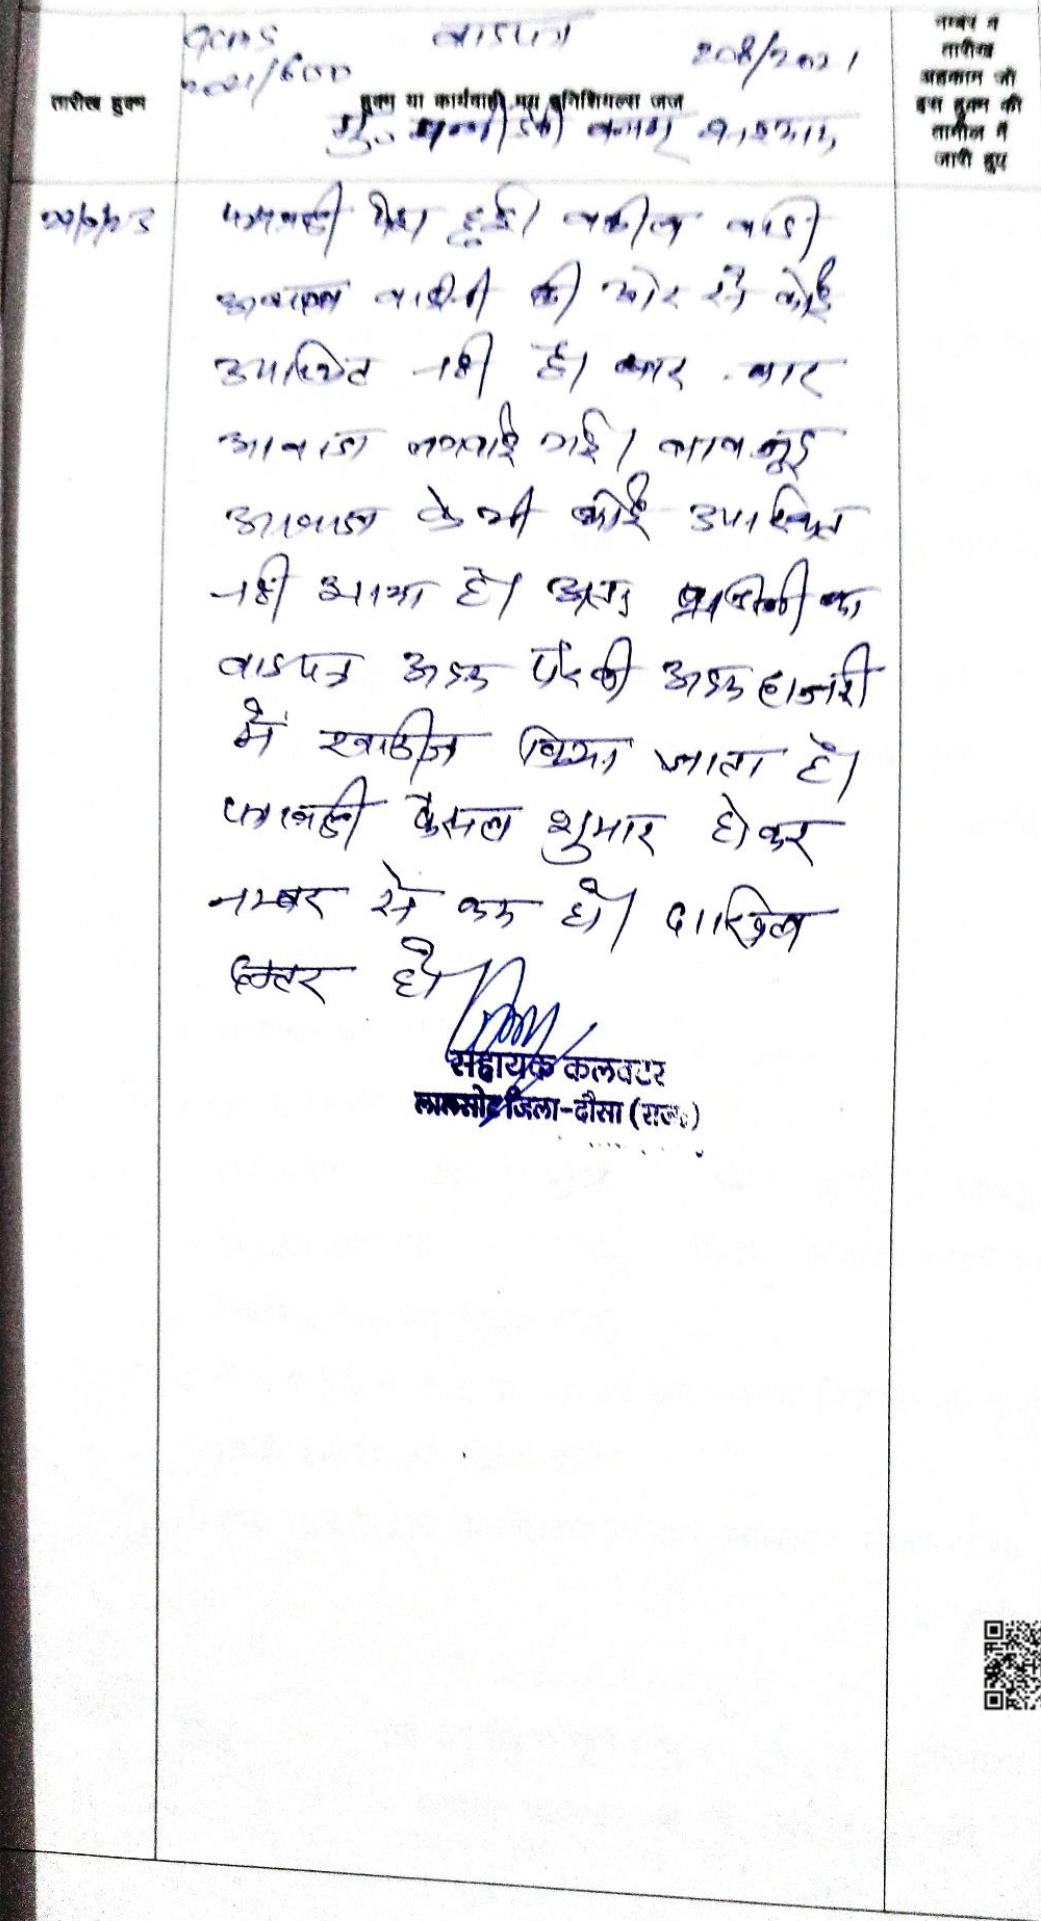 GCMS वादपत्र 208/2021
2021/600
तारीख हुक्म
हुक्म या कार्यवाही मय इनिशियल्स जज
नम्बर व
तारीख
अहकाम जो
इस हुक्म की
तामील में
जारी हुए
मु. बनाम
पत्रावली पेश हुई। वकील वादी
अथवा वादीनी की ओर से कोई
उपस्थित नही है। बार बार
आवाज लगवाई गई। बावजूद
आवाज के भी कोई उपस्थित
नही आया है। अतः का
वादपत्र अदम पैरवी अदम हाजरी
में खारीज किया जाता है।
पत्रावली फैसल शुमार होकर
नम्बर से कम हो। दाखिल
दफ्तर हो।
सहायक कलक्टर
लालसोट जिला-दौसा (राज०)